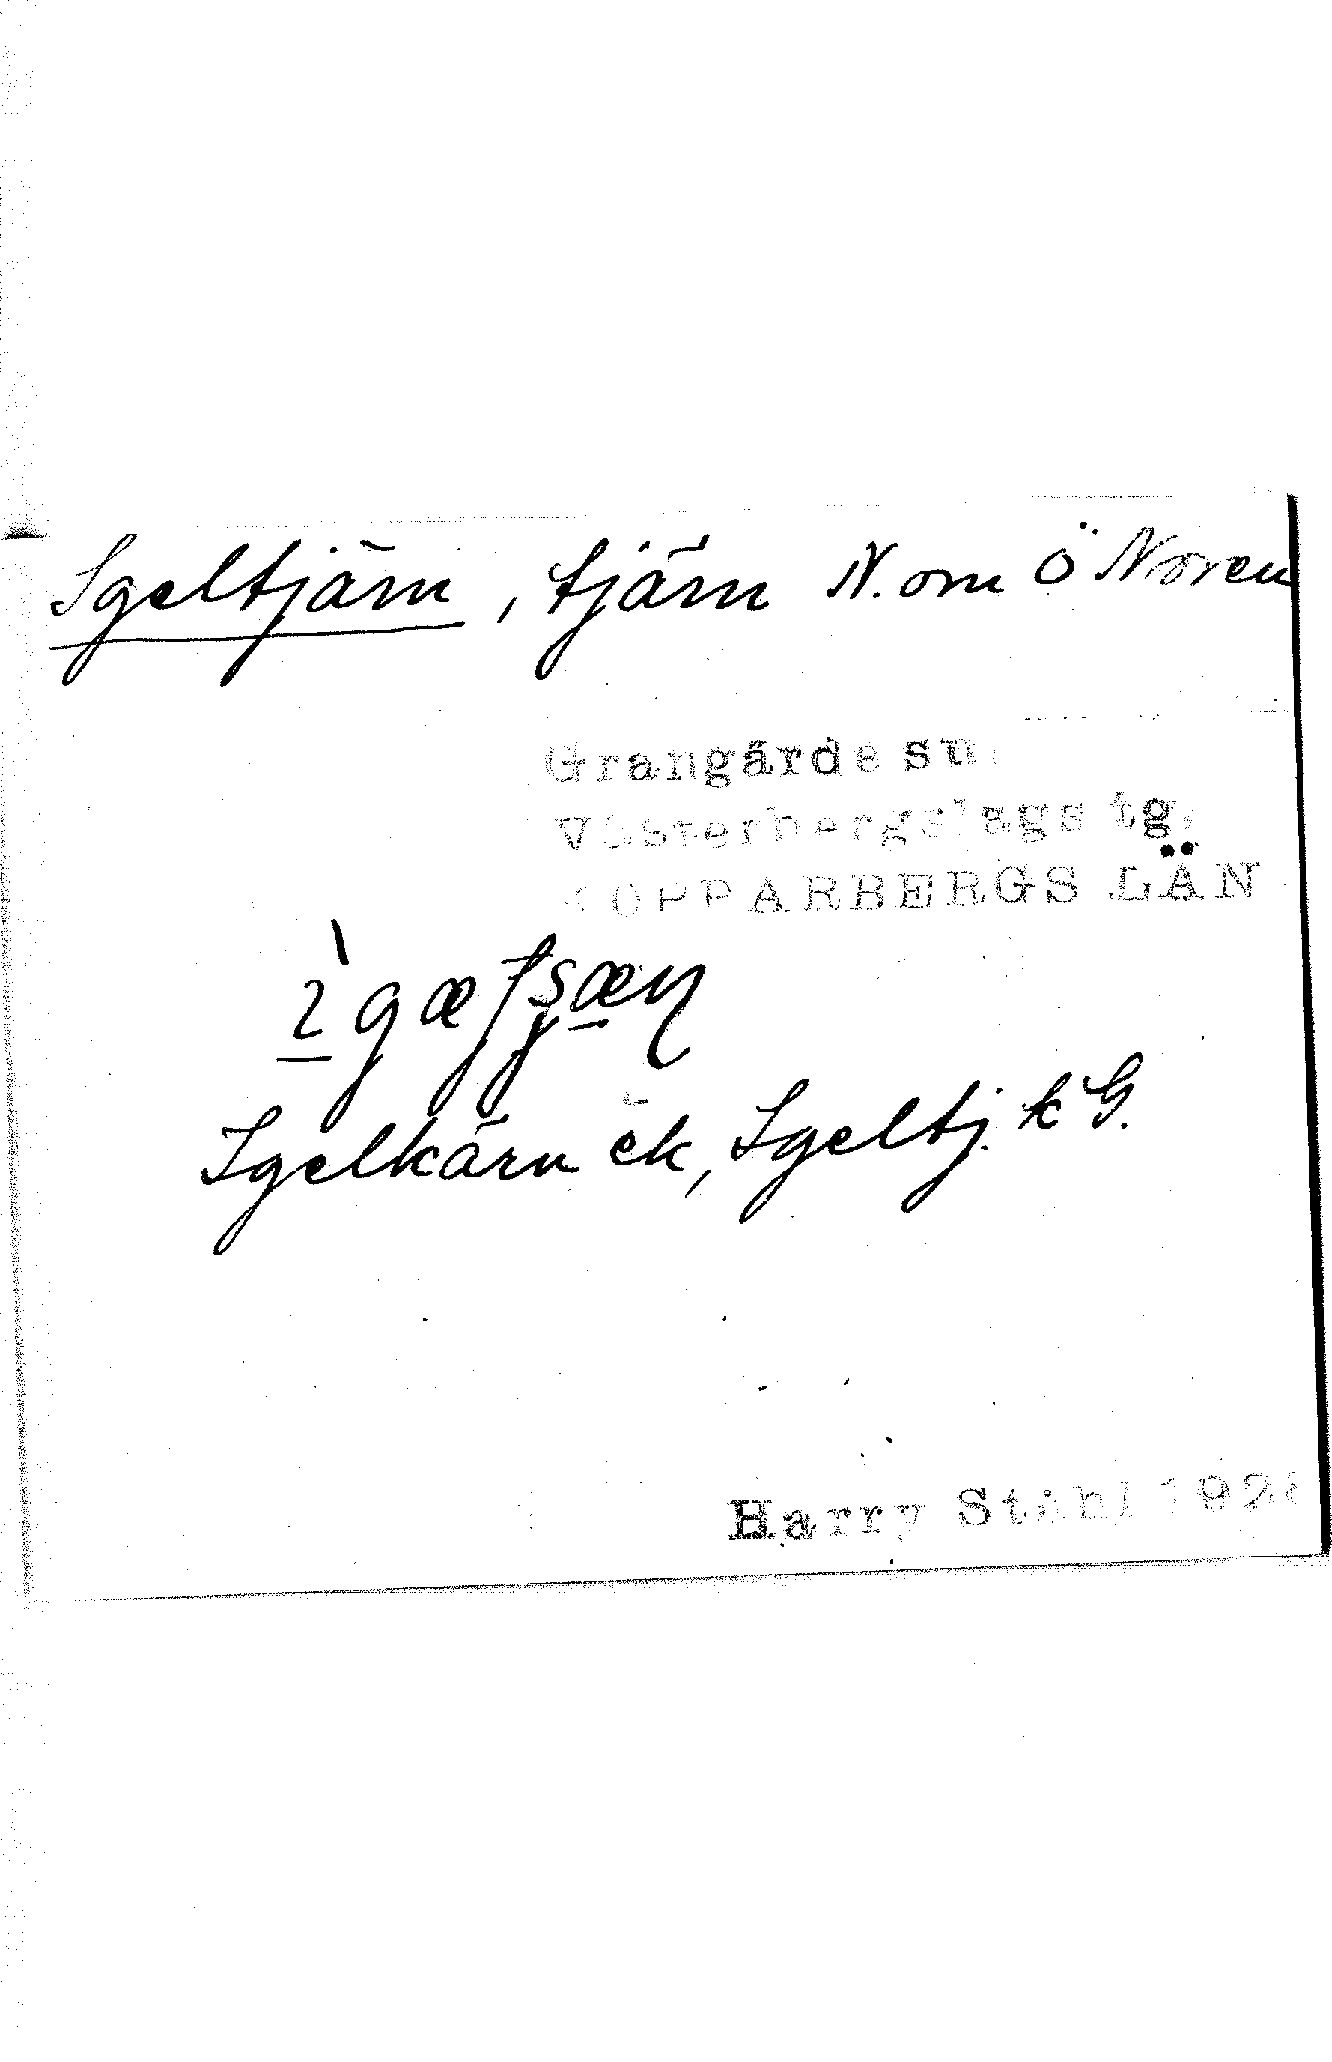 Igeltjärn, tjärn N. om Ö Noren
Grangärde sn.
Västerbergslags tg.
KOPPARBERGS LÄN
Igelkärn ek, Igeltj. k G.
Harry Ståhl 192